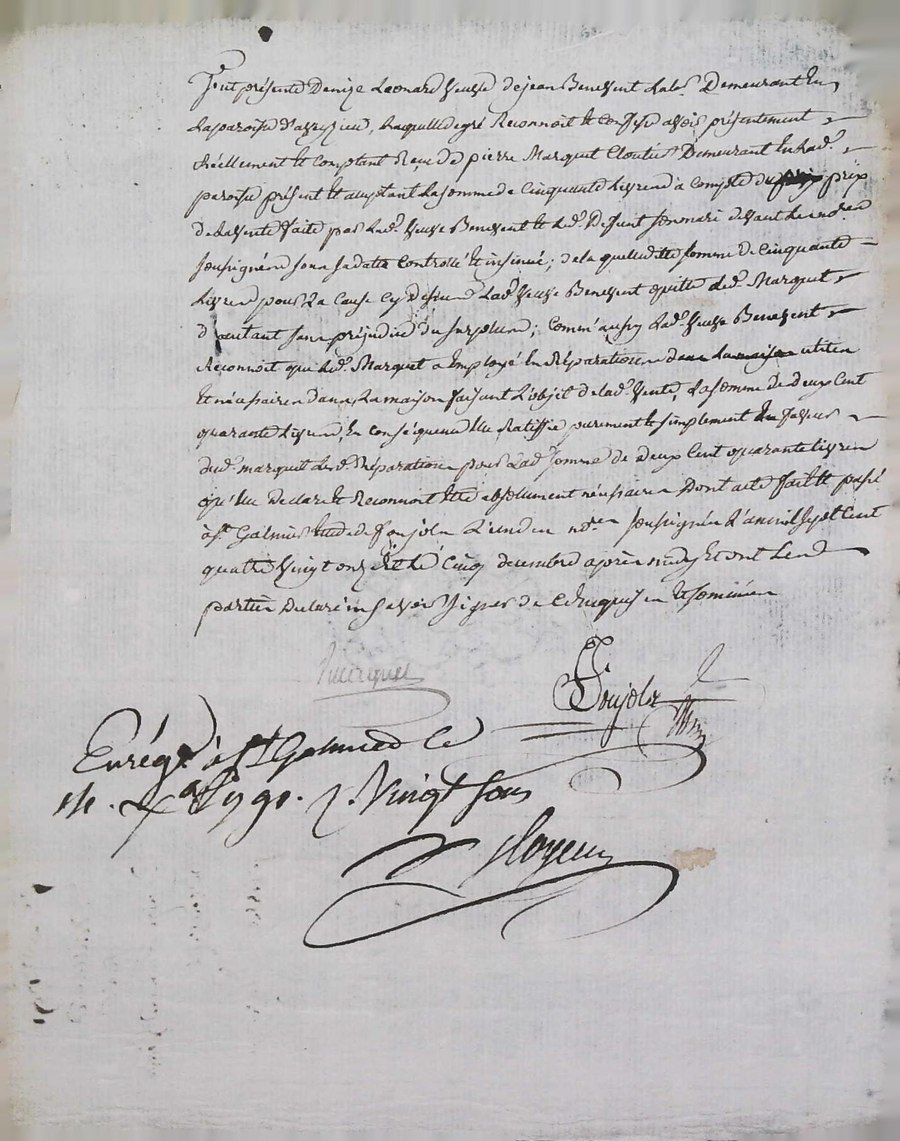 Fut présente Denize Leonard veuve de jean Benevent lab.r Demeurant En
La paroisse d'aveyzieu, Laquelle de gré Reconnoit et Confesse avoir présentement
Réellement et Comptant Reçu de pierre Marquet Cloutier Demeurant En lad.e
paroisse présent et acceptant La somme de Cinquante Livres à Compte du prix
de La vente faite par Lad.e veuve Benevent et led. Deffunt son mari devant Les no.res
soussignés sous sa datte Controllé et insinué; de laquelle ditte somme de Cinquante
Livres pour La Cause Cy Dessus Lad.e veuve Benevent quitte led. Marquet
D'autant sans préjudice du surplus; Comm'aussy Lad.e veuve Benevent
Reconnoit que Led. Marquet a Employé En Réparations utiles
Et nécessaires dans La maison faisant L'objet de lad.e vente, La somme de deux Cent
quarante Livres, En conséquence Elle Ratiffie purement et simplement En faveur
dud. marquet Lesd. Réparations pour Lad.e somme de deux Cent quarante Livres
qu'Elle Declare Et Reconnoit Etre absolument nécessaires Dont acte fait et passé
à St. Galmier Etude de Ponjols L'un des no.res soussignés L'an mil sept Cent
quatre vingt et Le Cinq decembre après midy Et ont Les d.
parties Declaré ne savoir signer de Ce Enquises Et sommées
Ponjols
Enrég.é à St Galmier le
1790. R. Vingt sous